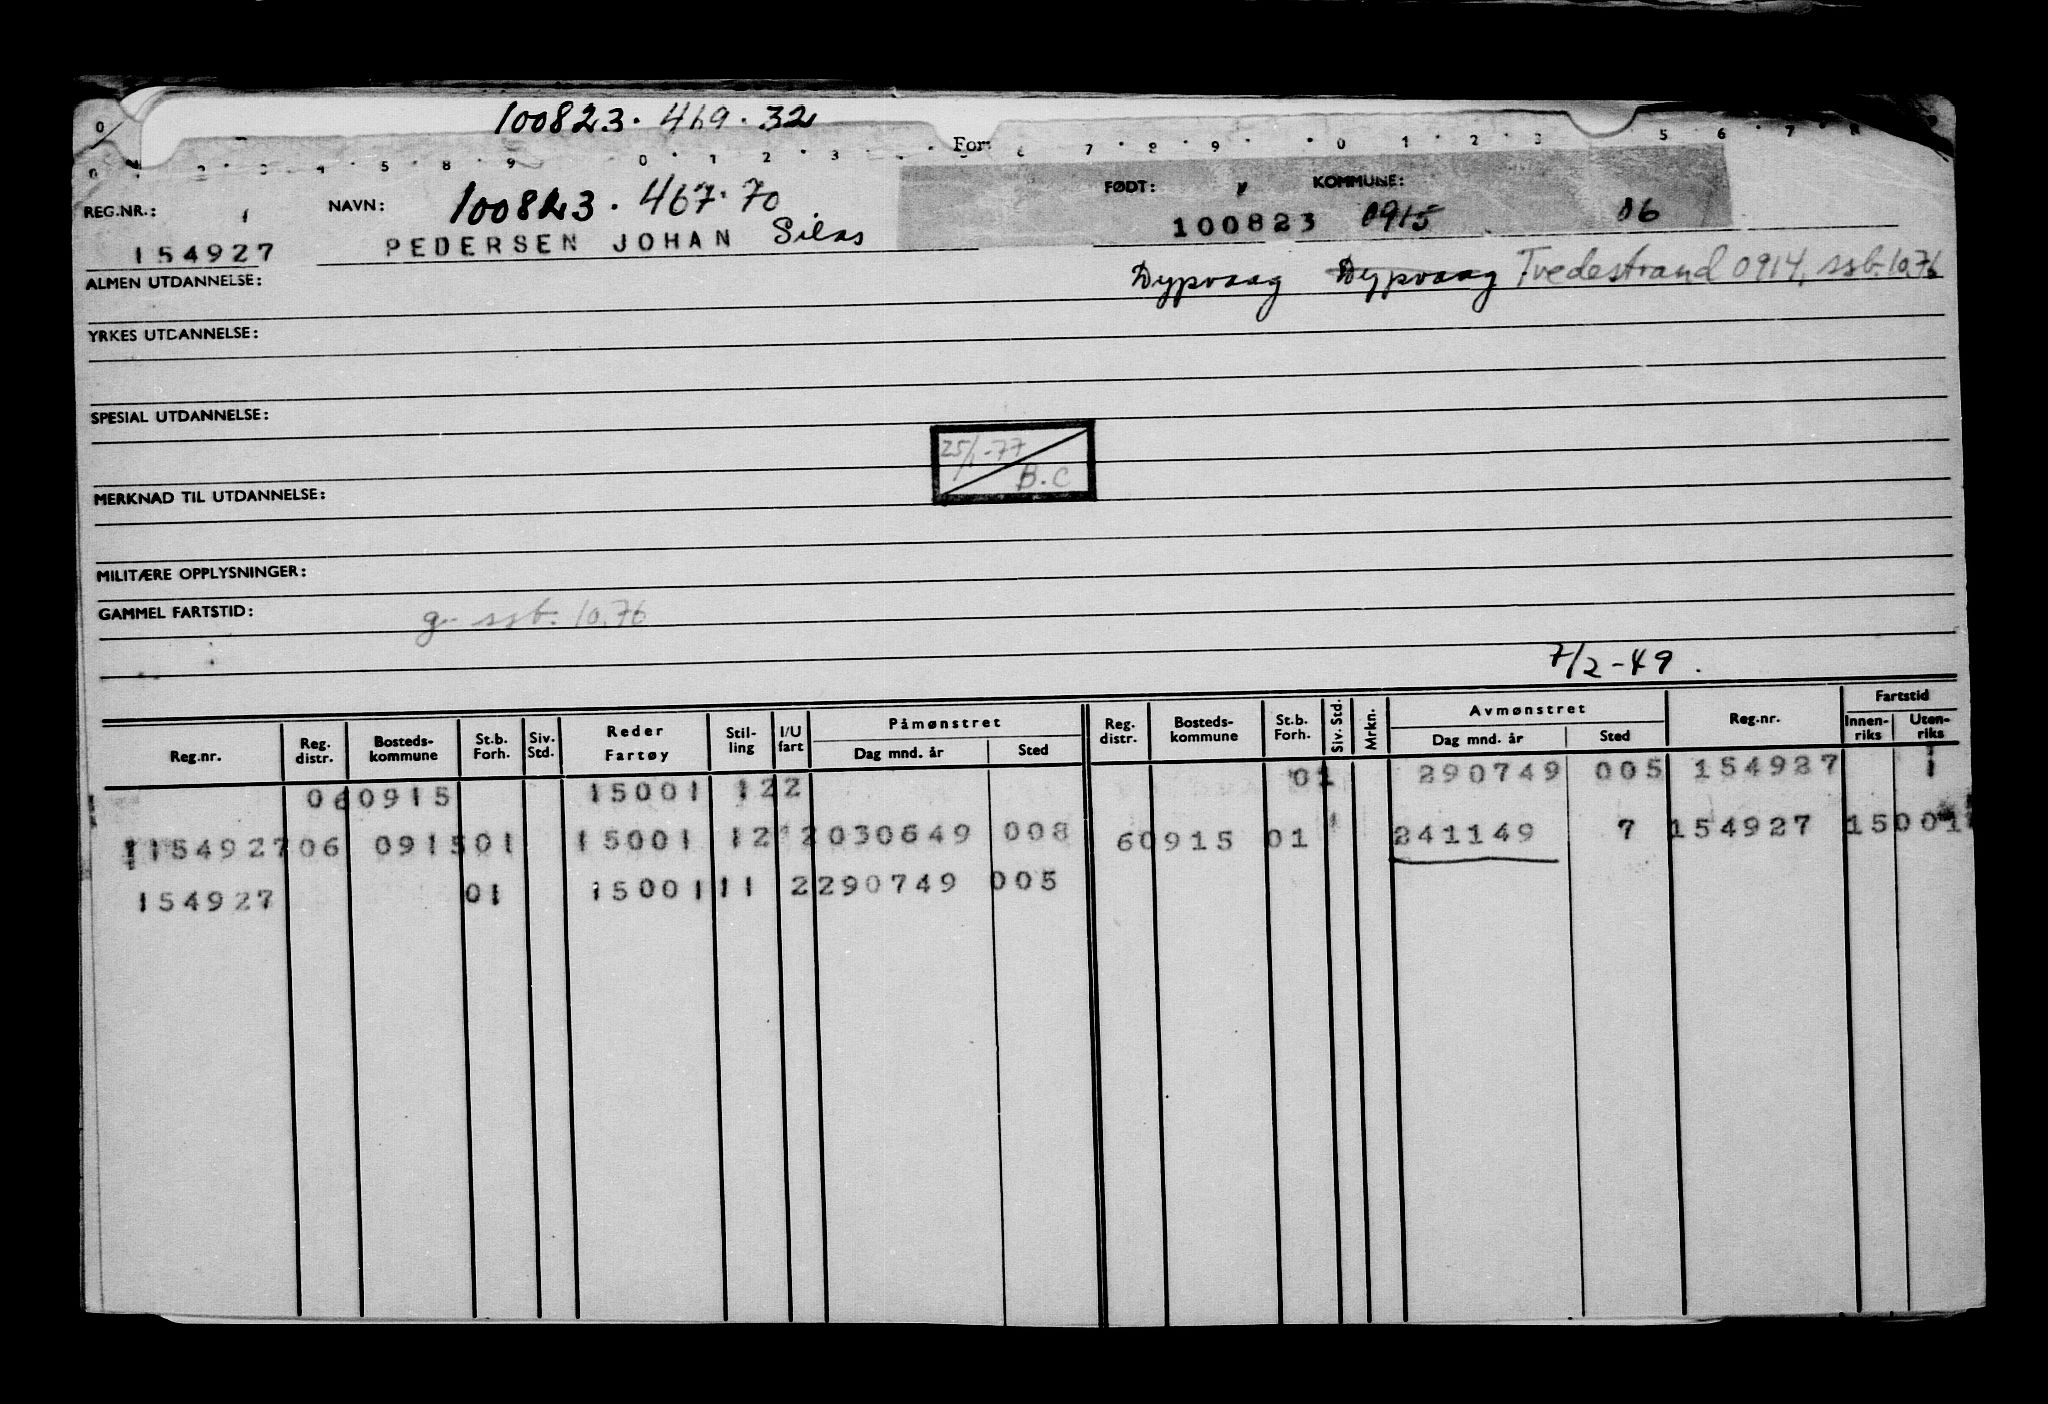 100823. 469. 32
For
0 1 2 3 4 5 8 9 0 1 2 3 6 7 8 9 0 1 2 3 5 6 7 8
REG.NR.: NAVN: 100823. 467. 70 FØDT: KOMMUNE:
154927 PEDERSEN JOHAN Silas 100823 0915 06
ALMEN UTDANNELSE: Dypvaag Dypvaag Tvedestrand 0914, ssb. 10.76
YRKES UTDANNELSE:
SPESIAL UTDANNELSE:
25/1-77
B.C
MERKNAD TIL UTDANNELSE:
MILITÆRE OPPLYSNINGER:
GAMMEL FARTSTID: g- ssb. 10.76
7/2-49.
Reg.nr. Reg. distr. Bosteds-kommune St.b. Forh. Siv. Std. Reder Fartøy Stil-ling I/U fart Påmønstret Dag mnd. år Sted Reg. distr. Bosteds-kommune St.b. Forh. Siv. Std. Mrkn. Avmønstret Dag mnd. år Sted Reg.nr. Fartstid Innen-riks Uten-riks
06 0915 15001 12 2 01 290749 005 154927 1
1154927 06 0915 01 15001 12 2 030649 008 6 0915 01 241149 7 154927 15001
154927 01 15001 11 2 290749 005